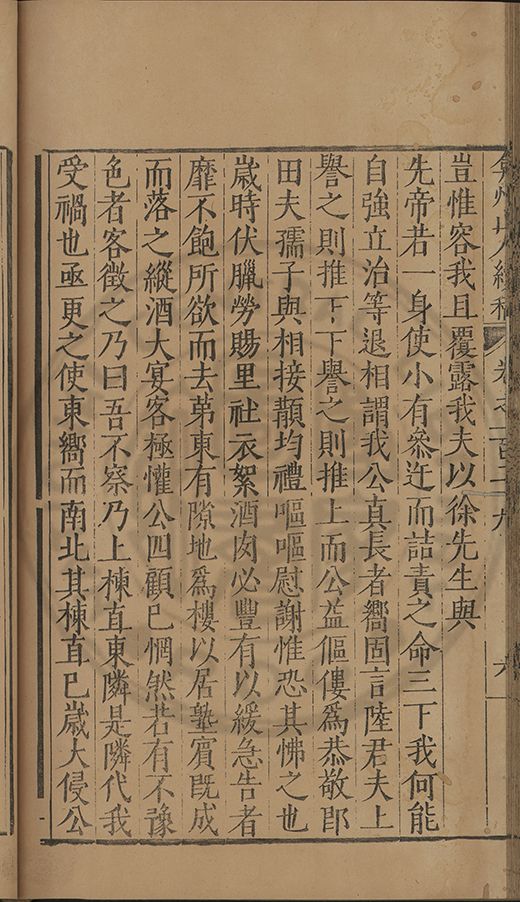 弇州山人續稿 卷之一百二十九 六
豈惟容我且覆露我夫以徐先生與
先帝若一身使小有叅迕而詰責之命三下我何能
自強立治等退相謂我公真長者嚮固言陸君夫上
譽之則推下下譽之則推上而公益傴僂爲恭敬卽
田夫孺子與相接顜均禮嘔嘔慰謝惟恐其怫之也
歲時伏臘勞賜里社衣絮酒肉必豐有以緩急告者
靡不飽所欲而去苐東有隙地爲樓以居塾賓旣成
而落之縱酒大宴客極懽公四顧已惘然若有不豫
色者客徵之乃曰吾不察乃上棟直東隣是隣代我
受禍也亟更之使東嚮而南北其棟直已歲大侵公